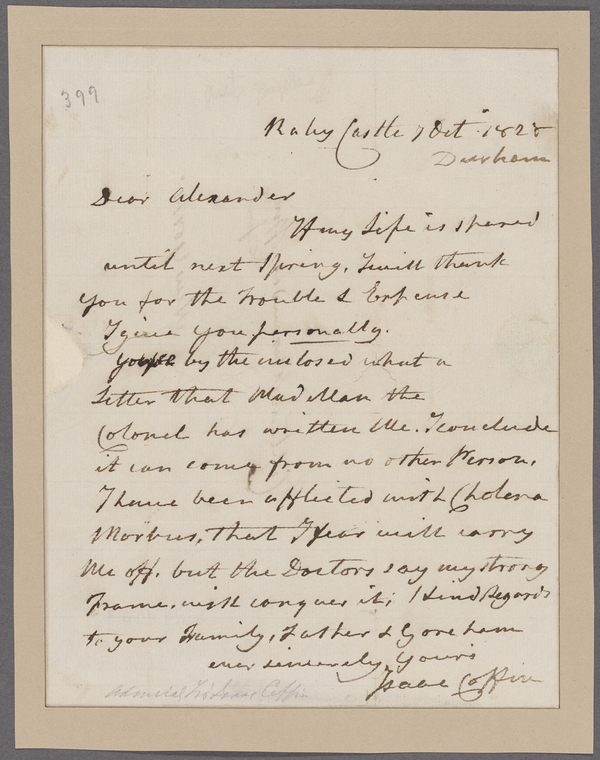 399
Raby Castle 7 Octr 1828
Durham
Dear Alexander
If my Life is spared
until next Spring, I will thank
you for the Trouble & Expense
I give you personally.
by the inclosed what a
Letter that Mad Man the
Colonel has written Me. I conclude
it can come from no other Person.
I have been afflicted with Cholera
Morbus, that I fear will carry
Me off. but the Doctors say my strong
Frame will conquer it; Kind Regards
to your Family, Father & Goreham
ever sincerely yours
Isaac Coffin
Admiral Sir Isaac Coffin